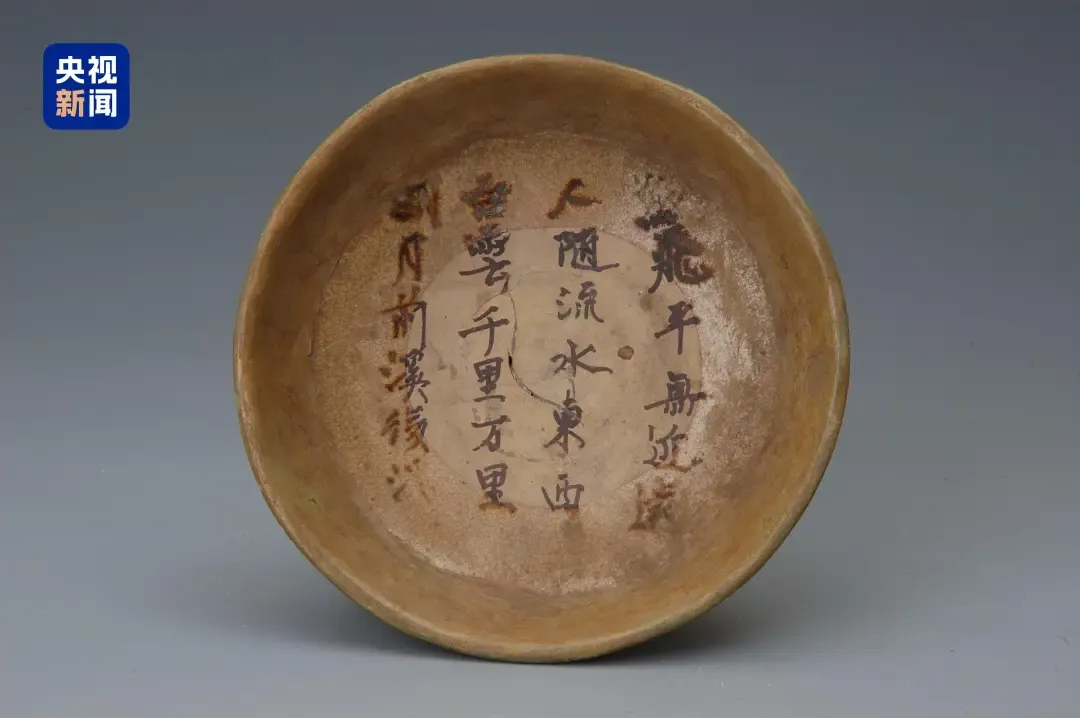 央视
新闻
飛平無近遠
人随流水東西
雲千里万里
月前溪後